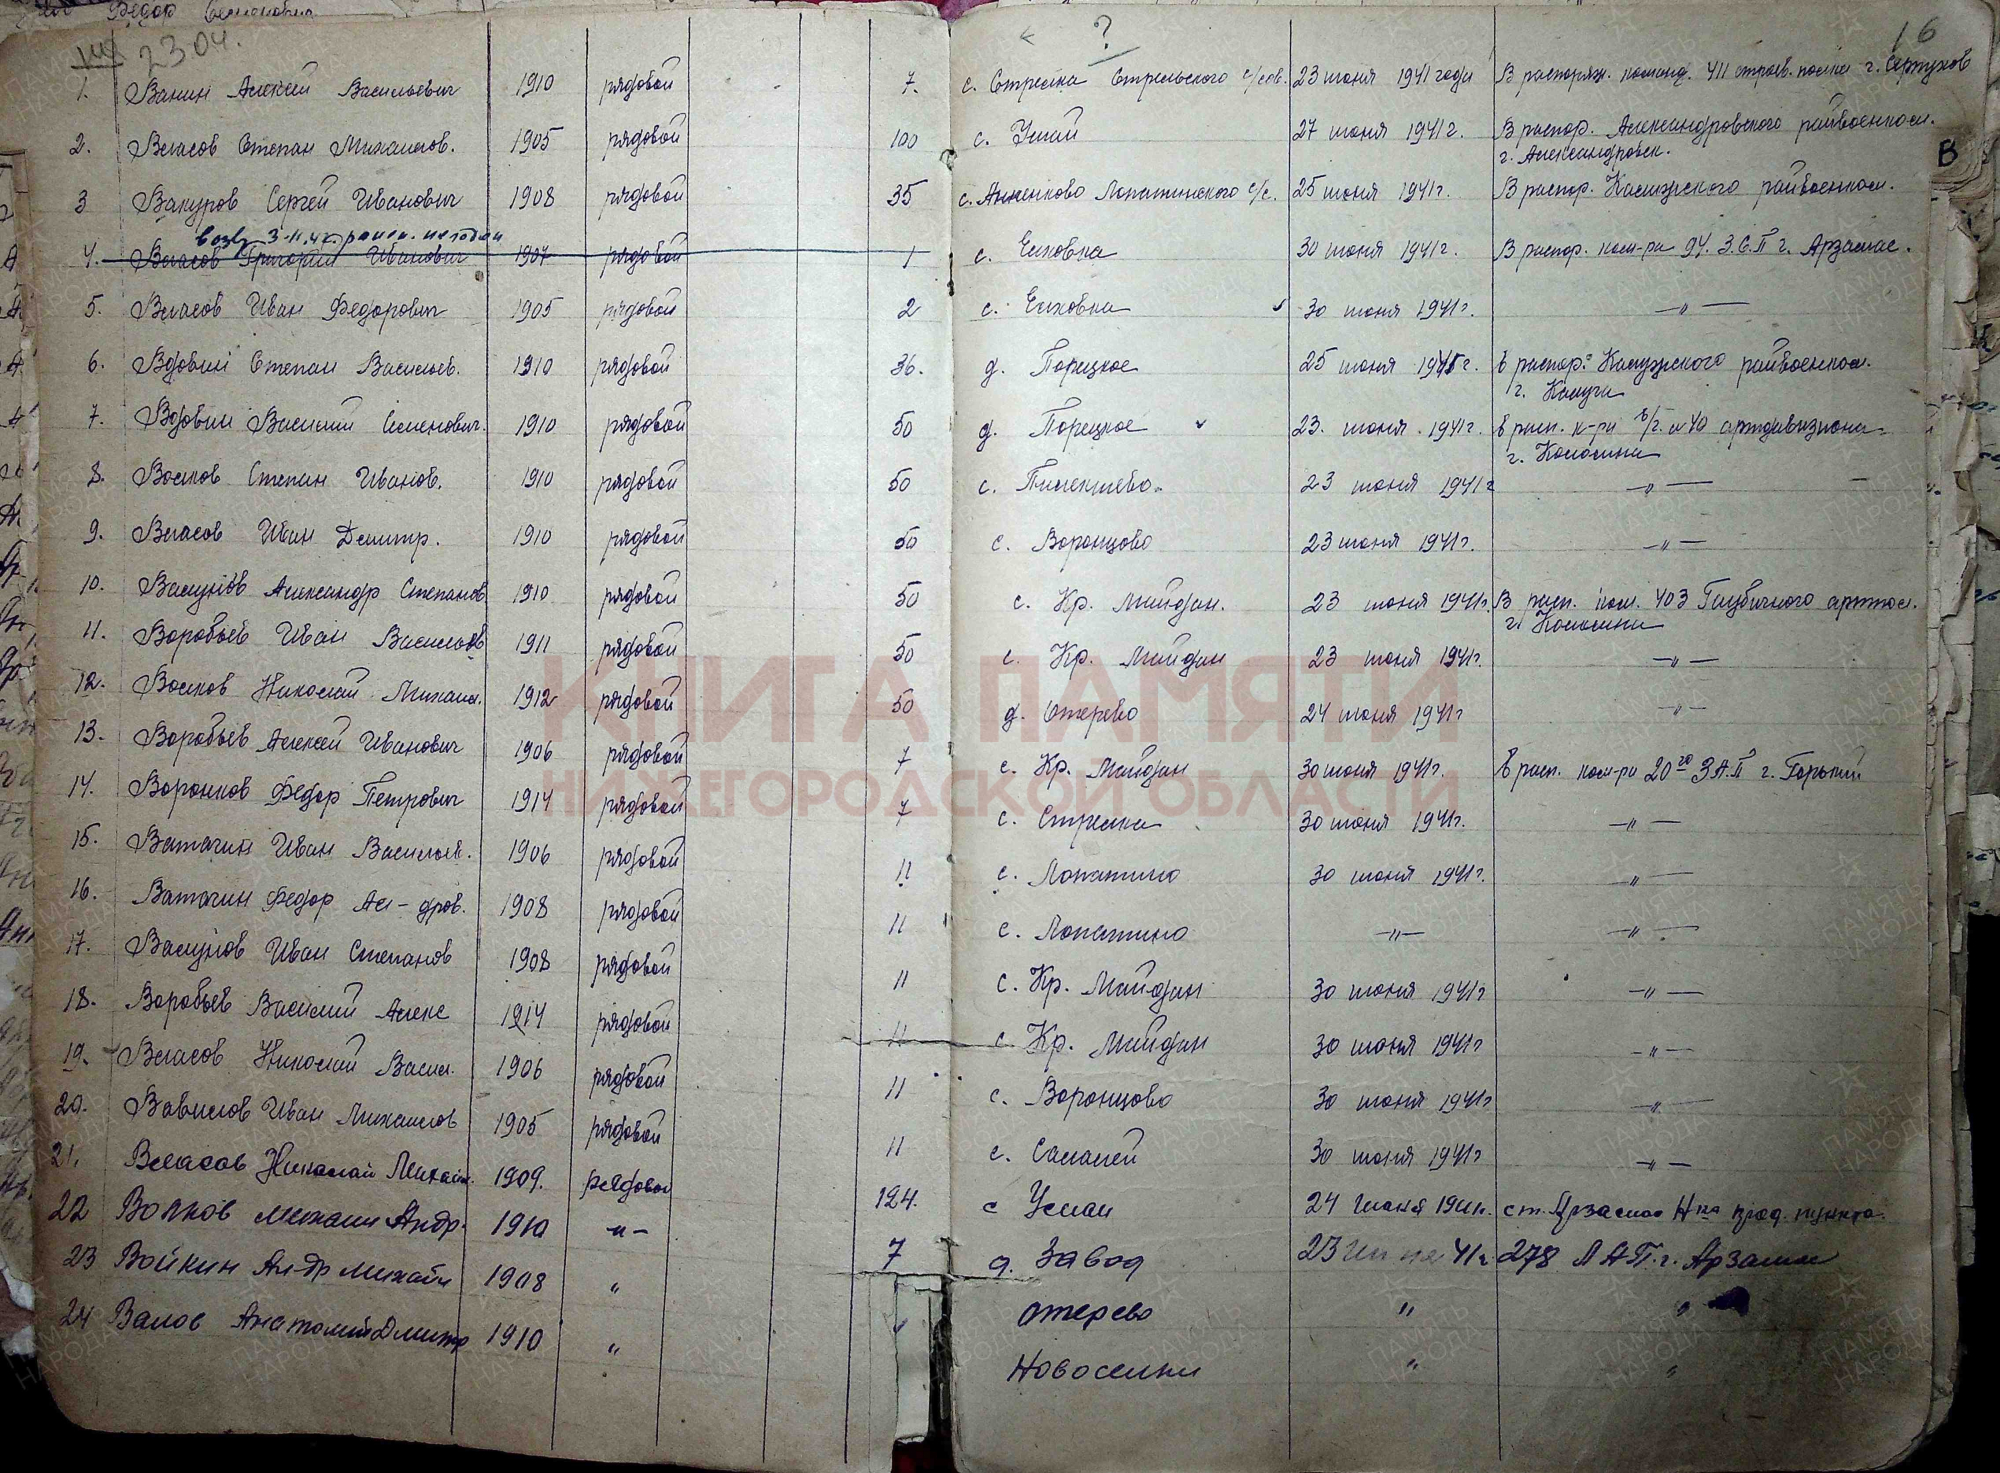 Федор
144 23 04. ? 16
1. Ванин Алексей Васильевич 1910 рядовой 7. с. Стрелка Стрельского с/сов. 23 июня 1941 года В распоряж. команд. 411 строев. полка г. Серпухов
2. Власов Степан Михайлов. 1905 рядовой 100 с. 27 июня 1941г. В распор. Александровского райвоенком.
г. Александровск. В
3 Вакуров Сергей Иванович 1908 рядовой 35 с. Анненково Лопатинского с/с. 25 июня 1941г. В распор. Калужского райвоенком.
4. Власов Григорий Иванович 1907 рядовой 1 с. Елховка 30 июня 1941г. В распор. ком-ра 94. З.С.П г. Арзамас.
5. Власов Иван Федорович 1905 рядовой 2 с. Елховка 30 июня 1941г. —"—
6. Вдовин Степан Васильев. 1910 рядовой 36. д. Порецкое 25 июня 1941г. в распор. Калужского райвоенком.
г. Калуга
7. Вдовин Василий Семенович. 1910 рядовой 50 д. Порецкое 23. июня. 1941г. в расп. к-ра в/г. артдивизиона
г. Коломна
8. Волков Степан Иванов. 1910 рядовой 50 с. 23 июня 1941г —"—
9. Власов Иван Дмитр. 1910 рядовой 50 с. Воронцово 23 июня 1941г. —"—
10. Васунов Александр Степанов 1910 рядовой 50 с. Кр. Майдан. 23 июня 1941г. В расп. ком. 403 Гаубичного артпол.
г. Коломна
11. Воробьев Иван Васильев 1911 рядовой 50 с. Кр. Майдан 23 июня 1941г. —"—
12. Волков Николай Михайл. 1912 рядовой 50 д. Отерево 24 июня 1941г —"—
13. Воробьев Алексей Иванович 1906 рядовой 7 с. Кр. Майдан 30 июня 1941г. В расп. ком-ра 20го ЗА.П г. Горький
14. Воронков Федор Петрович 1914 рядовой 7 с. Стрелка 30 июня 1941г. —"—
15. Ватагин Иван Васильев. 1906 рядовой 11 с. Лопатино 30 июня 1941г. —"—
16. Ватагин Федор Ал-дров. 1908 рядовой 11 с. Лопатино —"— —"—
17. Васунов Иван Степанов 1908 рядовой 11 с. Кр. Майдан 30 июня 1941г —"—
18. Воробьев Василий Алекс 1914 рядовой 11 с Кр. Майдан 30 июня 1941г —"—
19. Власов Николай Васил. 1906 рядовой 11 с. Воронцово 30 июня 1941г —"—
20. Вавилов Иван Михайлов 1905 рядовой 11 с. Салалей 30 июня 1941г —"—
21. Власов Николай Михайл. 1909. рядовой 124. с 24 Июня 1941г. ст. Арзамас прод. пункта.
22 Волков Михаил Андр. 1910 —"— 7 д. Завод 23 Июня 41г 278 ЛАП. г. Арзамас
23 Войкин Ал-др Михайл 1908 " Отерево " "
24 Валов Анатолий Дмитр 1910 " Новоселки " "
КНИГА ПАМЯТИ
НИЖЕГОРОДСКОЙ ОБЛАСТИ
ПАМЯТЬ НАРОДА